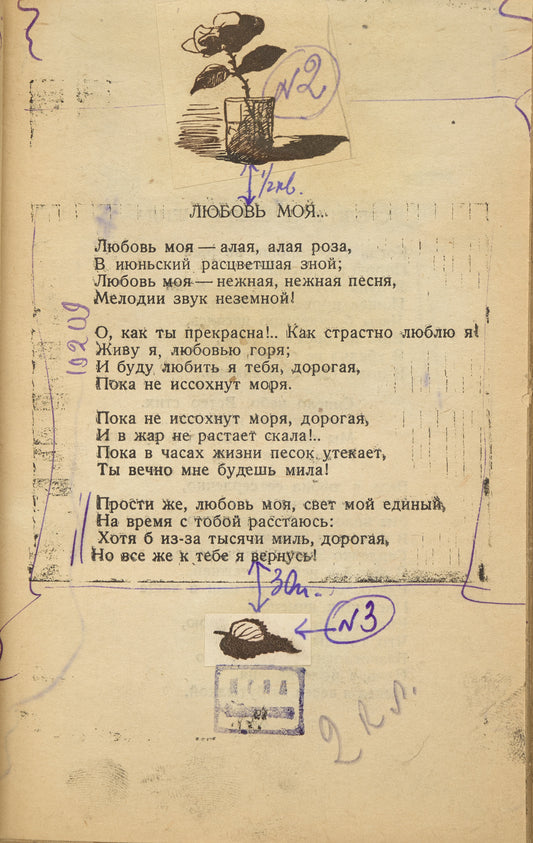 №2
1/2 кв.
ЛЮБОВЬ МОЯ...
Любовь моя — алая, алая роза,
В июньский расцветшая зной;
Любовь моя — нежная, нежная песня,
Мелодии звук неземной!
О, как ты прекрасна!.. Как страстно люблю я!
Живу я, любовью горя;
И буду любить я тебя, дорогая,
Пока не иссохнут моря.
Пока не иссохнут моря, дорогая,
И в жар не растает скала!..
Пока в часах жизни песок утекает,
Ты вечно мне будешь мила!
Прости же, любовь моя, свет мой единый,
На время с тобой расстаюсь:
Хотя б из-за тысячи миль, дорогая,
Но все же к тебе я вернусь!
№3
2 кл.